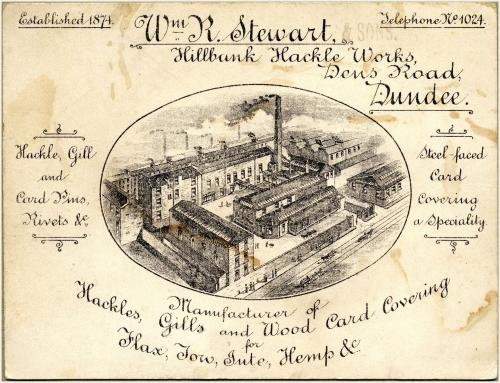 Established 1874.
Telephone No 1024.
Wm R. Stewart,
& SONS.
Hillbank Hackle Works,
Dens Road,
Dundee.
Hackle, Gill
and
Card Pins,
Rivets &c
Steel-faced
Card
Covering
a Speciality.
Manufacturer of
Hackles, Gills and Wood Card Covering
for
Flax, Tow, Jute, Hemp &c